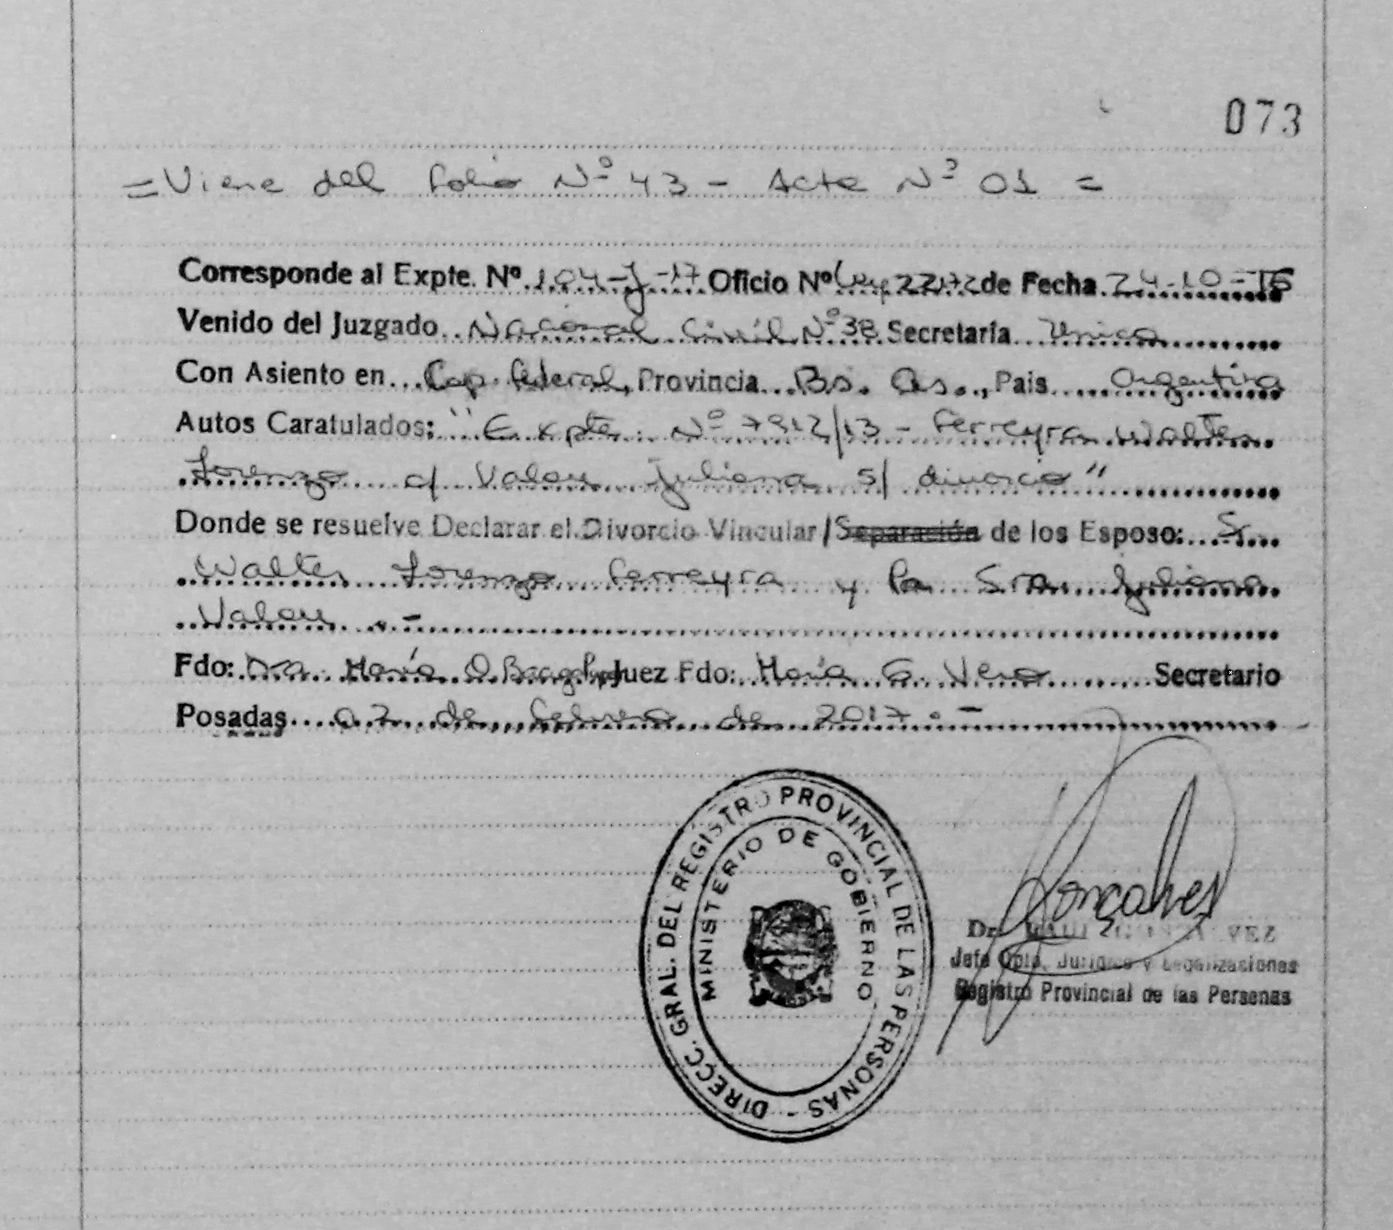 073
= Viene del folio Nº 43 - Acta Nº 01 =
Corresponde al Expte. Nº 104-J-17 Oficio Nº Ley 22172 de Fecha 24-10-16
Venido del Juzgado Nacional Civil Nº 38 Secretaría Unica
Con Asiento en Cap. Federal, Provincia Bs. As., Pais Argentina
Autos Caratulados: "Expte. Nº 7912/13 - Ferreyra Walter
Lorenzo c/ Valeu Juliana s/ divorcio"
Donde se resuelve Declarar el Divorcio Vincular/Separación de los Esposo: Sr.
Walter Lorenzo Ferreyra y la Sra Juliana
Valeu .-
Fdo: Dra. María Juez Fdo: María G. Vero Secretario
Posadas 02 de febrero de 2017.-
DIRECC. GRAL. DEL REGISTRO PROVINCIAL DE LAS PERSONAS -
MINISTERIO DE GOBIERNO
Gonçalves
Dr.
Jefe Dpto. Jurídico y Legalizaciones
Registro Provincial de las Personas